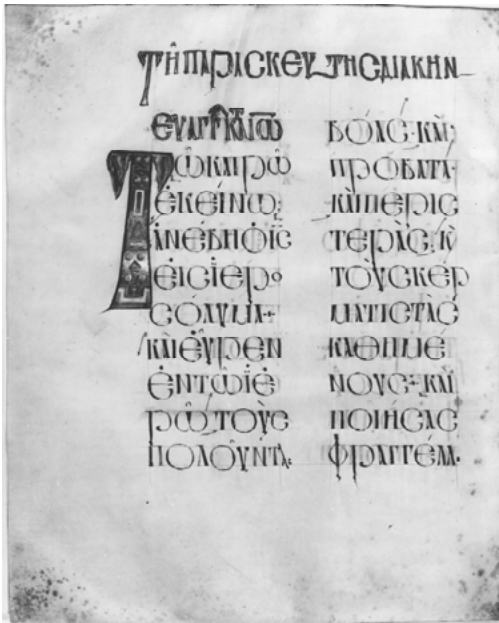 ΤΗ ΠΑΡΑΣΚΕΥ ΤΗΣ ΔΙΑΚΗΝ
ΕΥΑΓΓ ΚΑΤΑ ΙΩ
ΤΩ ΚΑΙΡΩ
ἘΚΕΊΝΩ·
ἈΝΕΒΗ Ὁ ΙΣ
ΕΙΣ ΙΕΡΟ
ΣΌΛΥΜΑ+
ΚΑΙ ΕΥΡΕΝ
ἘΝ ΤΩ ΙΕ
ΡΩ ΤΟΥΣ
ΠΩΛΟΥΝΤΑ·
ΒΟΑΣ· ΚΑΙ
ΠΡΟΒΑΤΑ·
ΚΑΙ ΠΕΡΙΣ
ΤΕΡΑΣ· Κ
ΤΟῪΣ ΚΕΡ
ΜΑΤΙΣΤΑΣ
ΚΑΘΗΜΕ
ΝΟΥΣ+ ΚΑΙ
ΠΟΙΗΣΑΣ
ΦΡΑΓΓΕΛΛ·